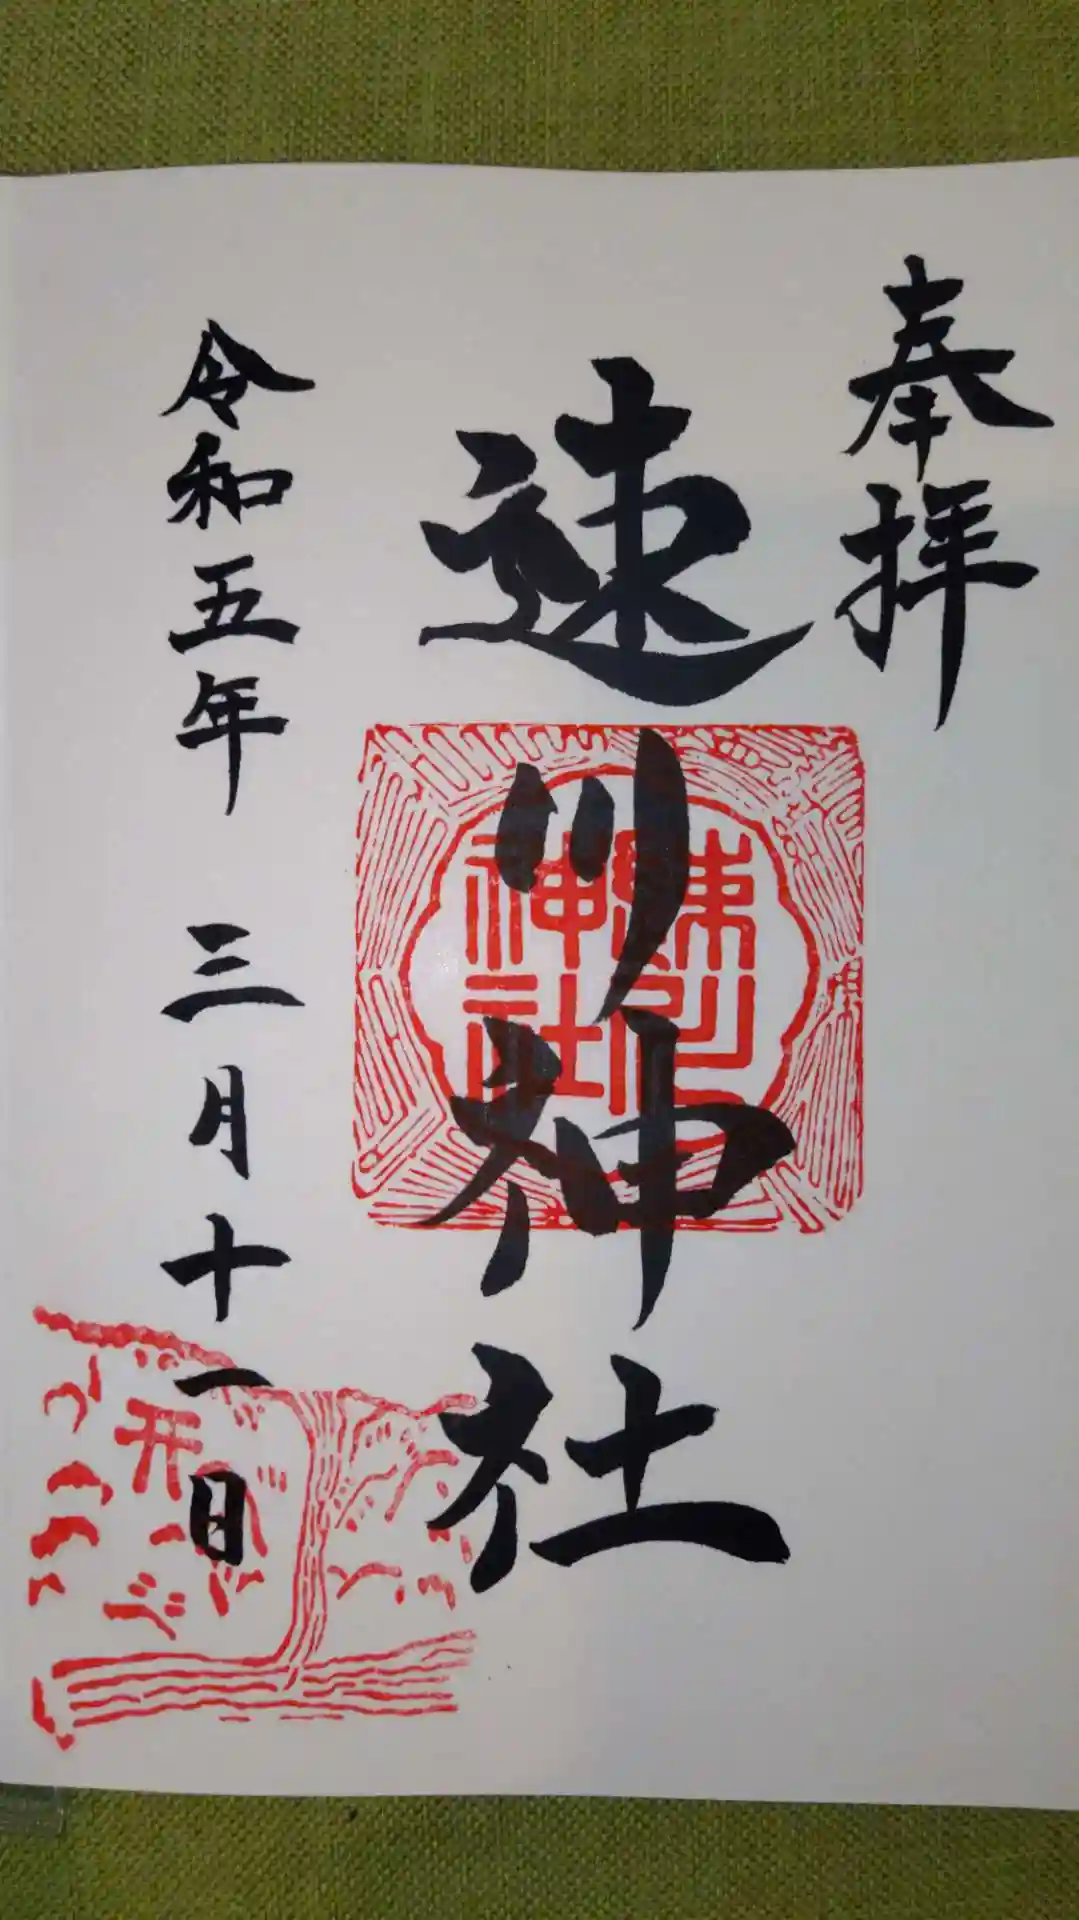 奉拝
速川神社
速川
神社
令和五年 三月十一日